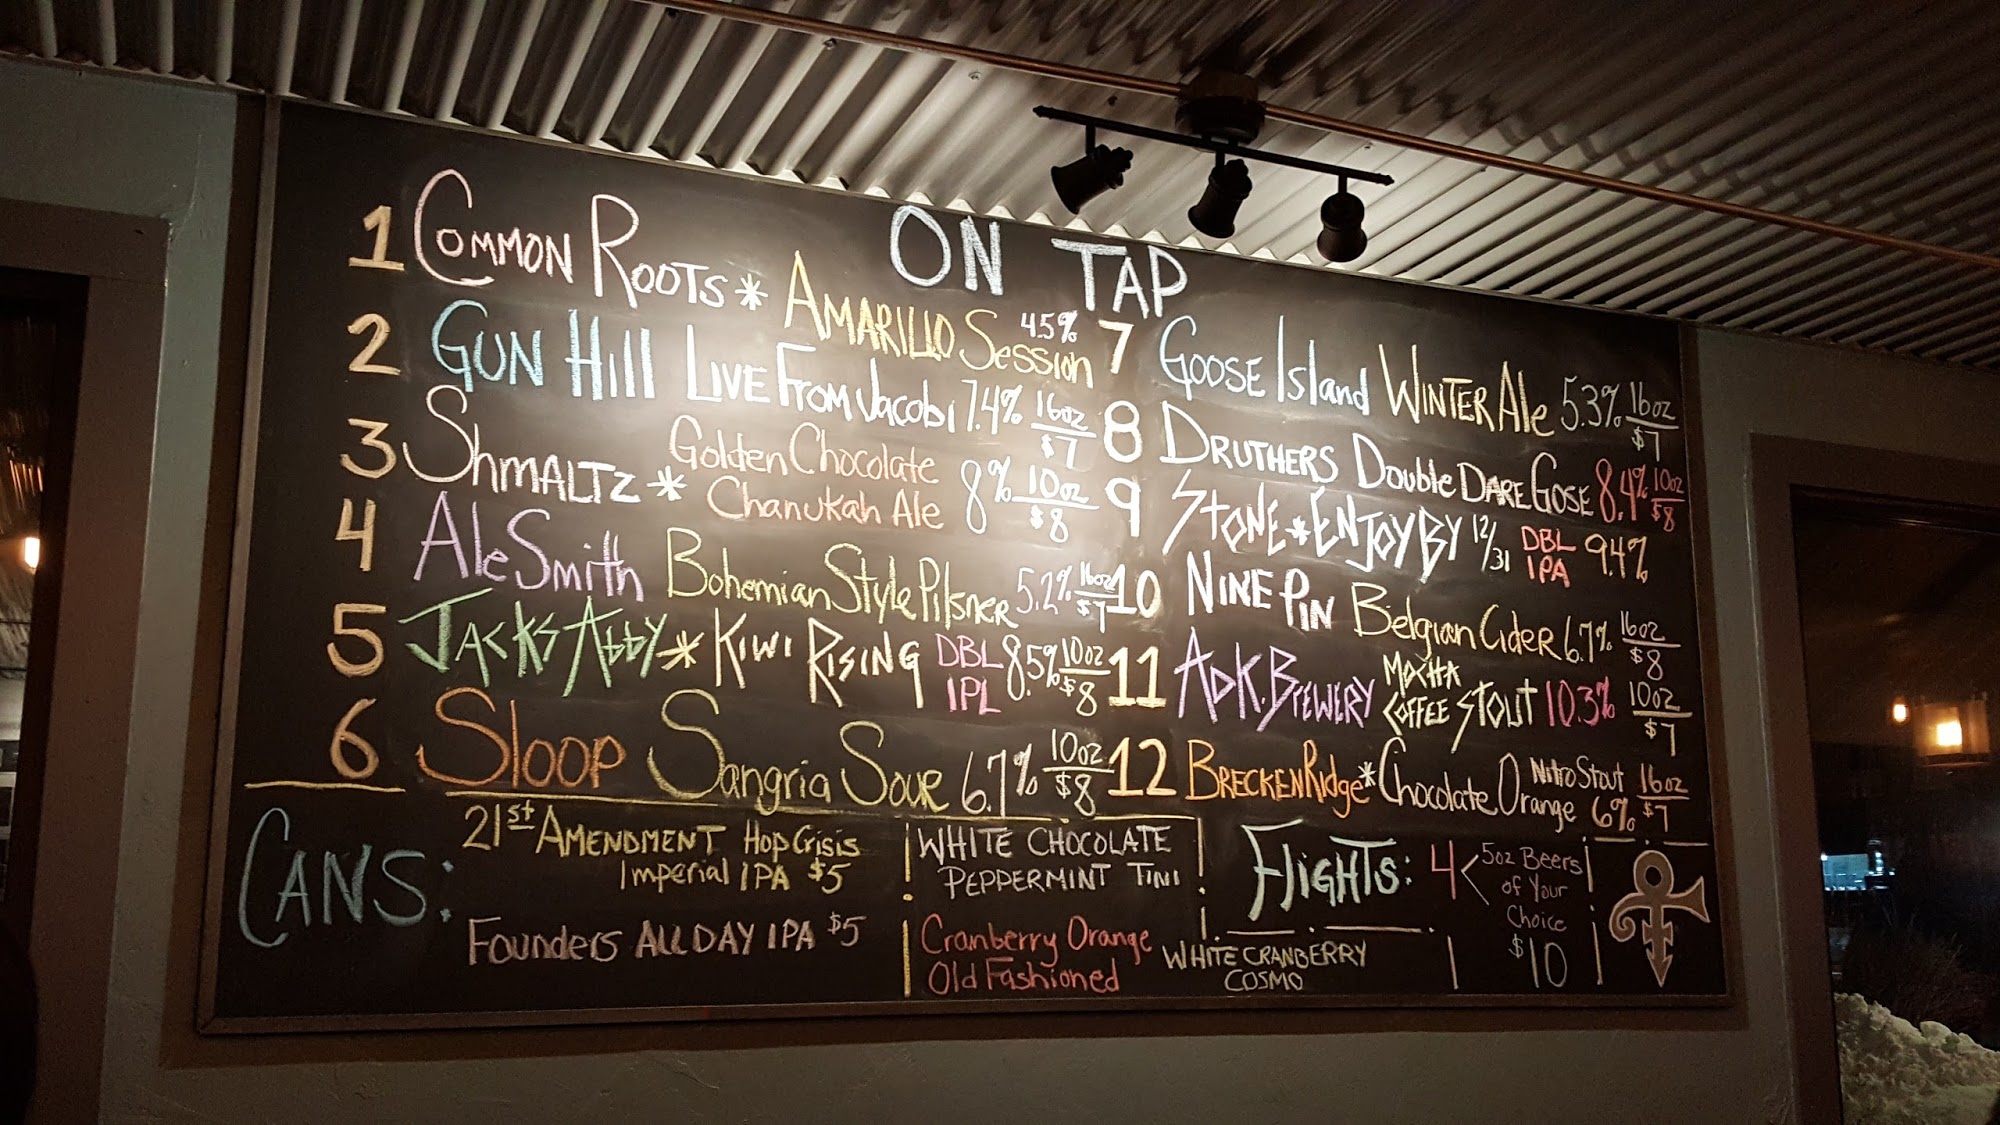 ON TAP
1 COMMON ROOTS * AMARILLO Session 4.5%
2 GUN Hill LIVE FROM Jacobi 7.4% 16oz $7
3 SHMALTZ * Golden Chocolate Chanukah Ale 8% 10oz $8
4 AleSmith Bohemian Style Pilsner 5.2% 16oz $7
5 JACKS ABBY * KIWI RISING DBL IPL 8.5% 10oz $8
6 Sloop Sangria Sour 6.7% 10oz $8
7 GOOSE Island WINTER Ale 5.3% 16oz $7
8 DRUTHERS Double DARE GOSE 8.4% 10oz $8
9 STONE * ENJOY BY 12/31 DBL IPA 9.4%
10 NINE PIN Belgian Cider 6.7% 16oz $8
11 ADK. BREWERY MOCHA COFFEE STOUT 10.3% 10oz $7
12 BRECKENRidge * Chocolate Orange Nitro Stout 6% 16oz $7
CANS:
21st AMENDMENT Hop Crisis
Imperial IPA $5
Founders ALL DAY IPA $5
WHITE CHOCOLATE
PEPPERMINT TINI
Cranberry Orange
Old Fashioned
WHITE CRANBERRY
COSMO
FlIGHTS: 4 < 5oz Beers
of Your
Choice
$10